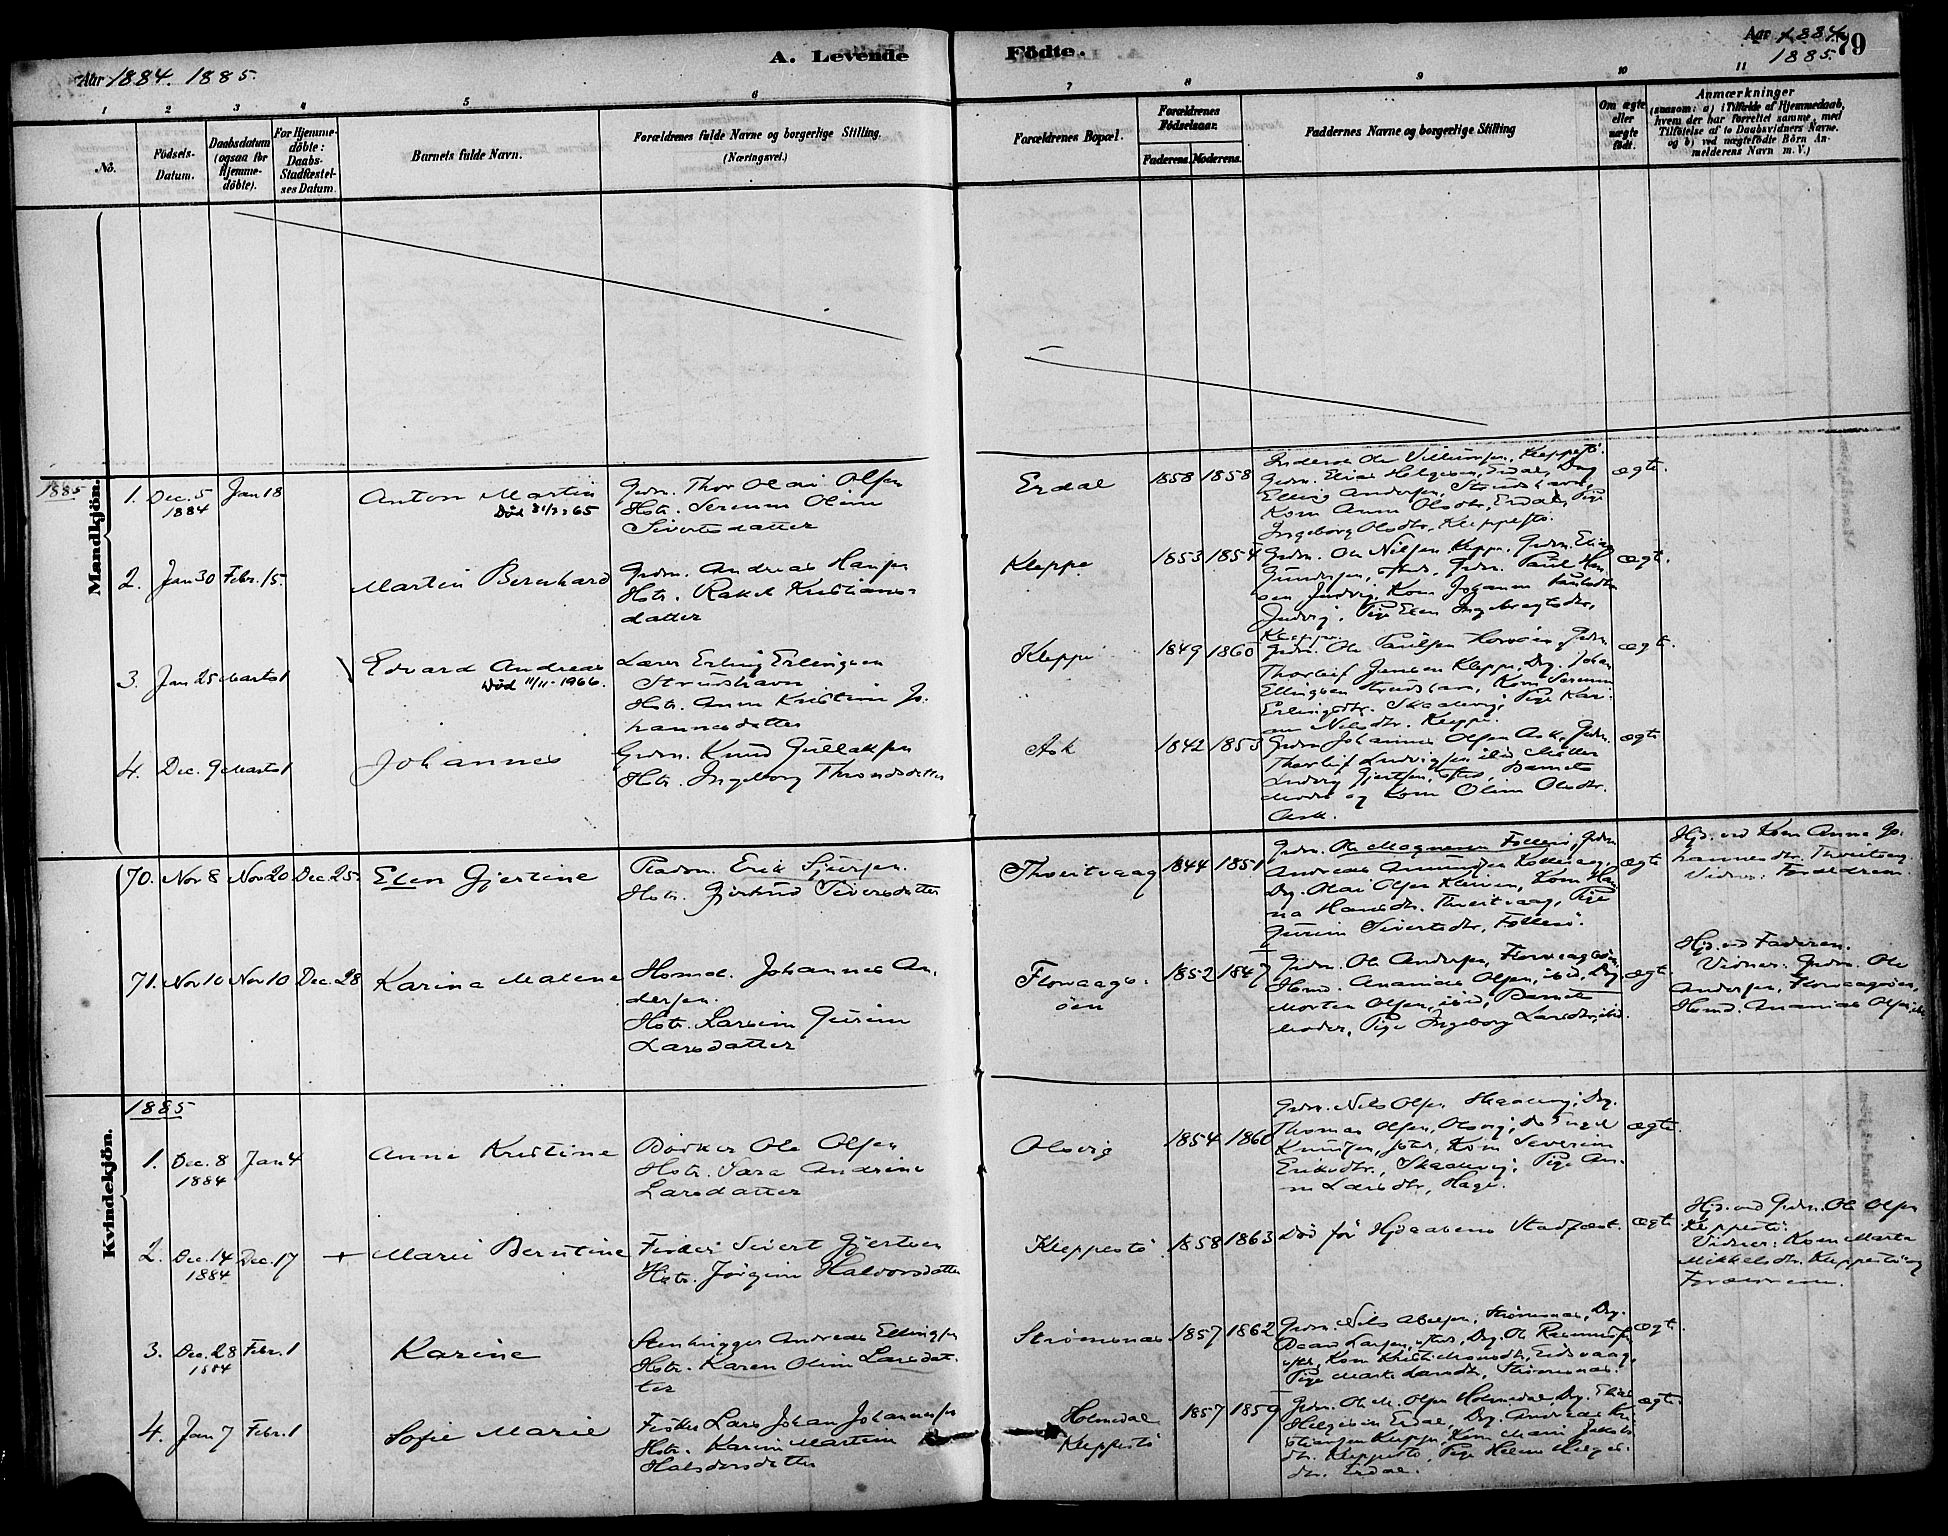 Aar 1884. 1885.
A. Levende
Födte.
Aar 1884
1885.
79
1
2
3
4
5
6
7
8
9
10
11
No.
Födsels-
Datum.
Daabsdatum
(ogsaa for
Hjemme-
döbte).
For Hjemme-
döbte:
Daabs-
Stadfæstel-
ses Datum.
Barnets fulde Navn.
Forældrenes fulde Navne og borgerlige Stilling.
(Næringsvei.)
Forældrenes Bopæl.
Forældrenes
Födselsaar.
Faderens.
Moderens.
Faddernes Navne og borgerlige Stilling
Om ægte
eller
uægte
födt.
Anmærkninger
(saasom: a) i Tilfælde af Hjemmedaab,
hvem der har forrettet samme, med
Tilföielse af to Daabsvidners Navne.
og b) ved uægtefödte Börn An-
melderens Navn m. V.)
Mandkjön.
1885
1. Dec. 5 Jan 18
1884
Anton Martin
Död 31/3 65
Grdm. Thor Olai Olsen
Hstr. Serine Oline
Sivertsdatter
Erdal
1858 1858
Ole Villumsen, Kleppestö.
Grdm. Elias Helgesen, Erdal, Drg
Elling Andersen, Strudshavn,
Kone Anna Olsdtr, Erdal, Pige
Ingeborg Olsdtr, Kleppestö.
ægte.
2. Jan 30 Febr. 15.
Martin Bernhard
Grdm. Andreas Hansen
Hstr. Rakel Kristians-
datter
Kleppe
1853 1854
Grdm. Ole Nilsen, Kleppe, Grdm. Elias
Gundersen, sted, Grdm. Paul Han
sen Juvig, Kone Johanna Paulsdtr
Juvig, Pige Elen Ingebrigtsdtr,
Kleppe.
ægte.
3. Jan 25 Marts 1
Edvard Andreas
Död 11/11-1966.
Lærer Erling Erlingsen
Strudshavn
Hstr. Anna Kristine Jo-
hannesdatter
Kleppe
1849 1860
Grdm. Ole Paulsen, Grdm
Thorleif Jensen Kleppe, Drg. Johan
Ellingsen Strudshavn, Kone Serine
Erlingsdtr. Skaalevig, Pige Kari-
ne Nilsdtr. Kleppe.
ægte.
4. Dec. 9 Marts 1
Johannes
Grdm. Knud Gullaksen
Hstr. Ingeborg Throndsdatter
Ask
1842 1853
Grdm Johannes Olsen Ask, Grdm.
Thorleif Ludvigsen ibid
Ludvig Gjertsen, sted, Barnets
Moder og Kone Oline Olsdtr.
Ask.
ægte
Kvindekjön.
70. Nov 8 Nov 20 Dec. 25.
Elen Gjertine
Erik Sjursen.
Hstr. Gjertrud Siversdatter
Thveitvaag
1844 1851
Grdm. Ole Magnesen Follesö, Grdm
Andreas Amundsen Kollevaag,
Drg. Olai Olsen Kleiven, Kone Han
na Hansdtr. Thveitvaag, Pige
Gurine Sivertsdtr, Follesö.
ægte
Hjd. ved Kone Anna Jo-
hannesdtr. Thveitvaag
Vidner: Forældrene.
71. Nov 10 Nov 10 Dec. 28
Karina Malene
Husmd. Johannes An-
dersen.
Hstr. Larsine Gurine
Larsdatter
Florvaags-
öen
1852 1847
Grdm. Ole Andersen, Florvaagsöen,
Husmd. Ananias Olsen, ibid, Drg
Morten Olsen, ibid, Barnets
Moder, Pige Ingeborg Larsdtr, ibid.
ægte
Hjd. ved Faderen.
Vidner: Grdm. Ole
Andersen, Florvaagsöen,
Husmd. Ananias Olsen, ibd
1885
1. Dec. 8 Jan 4
1884
Anna Kristine
Bödker Ole Olsen
Hstr. Sara Andrine
Larsdatter
Olsvig
1854 1860
Grdm. Nils Olsen Skaalevig, Drg.
Thomas Olsen, Olsvig, Do
Knudsen, sted, Kone Severine
Eriksdtr., Skaalevig; Pige An-
na Larsdtr, Hage.
ægte.
2. Dec. 14 Dec. 17 +
1884
Marie Berntine
Fisker Sivert Gjertsen
Hstr. Jörgine Halvorsdatter
Kleppestö
1858 1863
Död för Hjdaabens Stadfæst.
ægte
Hjd. ved Grdm. Ole Olsen
Kleppestö.
Vidner: Kone Marta
Mikkelsdtr. Kleppestö og
Forældrene.
3. Dec. 28 Febr. 1
1884
Karine
Stenhugger Andreas Ellingsen
Hstr. Karen Oline Larsdat-
ter
Strömsnes
1857 1862
Grdm. Nils Abelsen, Strömsnes, Drg.
Daan Larsen, sted, Drg. Ole Rasmussen
sted, Kone Kristi Monsdtr, Eidsvaag,
Pige Marta Larsdtr, Strömsnes.
ægte.
4. Jan 7 Febr. 1
Sofie Marie
Fisker Lars Johan Johannesen
Hstr. Karine Martine
Halvdorsdatter
Holmedal
Kleppestö
1857 1859
Grdm. Ole M. Olsen Holmedal, Drg. Elias
Helgesen Erdal, Drg. Andreas Kri-
stiansen Kleppe, Kone Mari Jakobs
dtr. Kleppestö, Pige Helene Helges-
dtr. Erdal.
ægte.